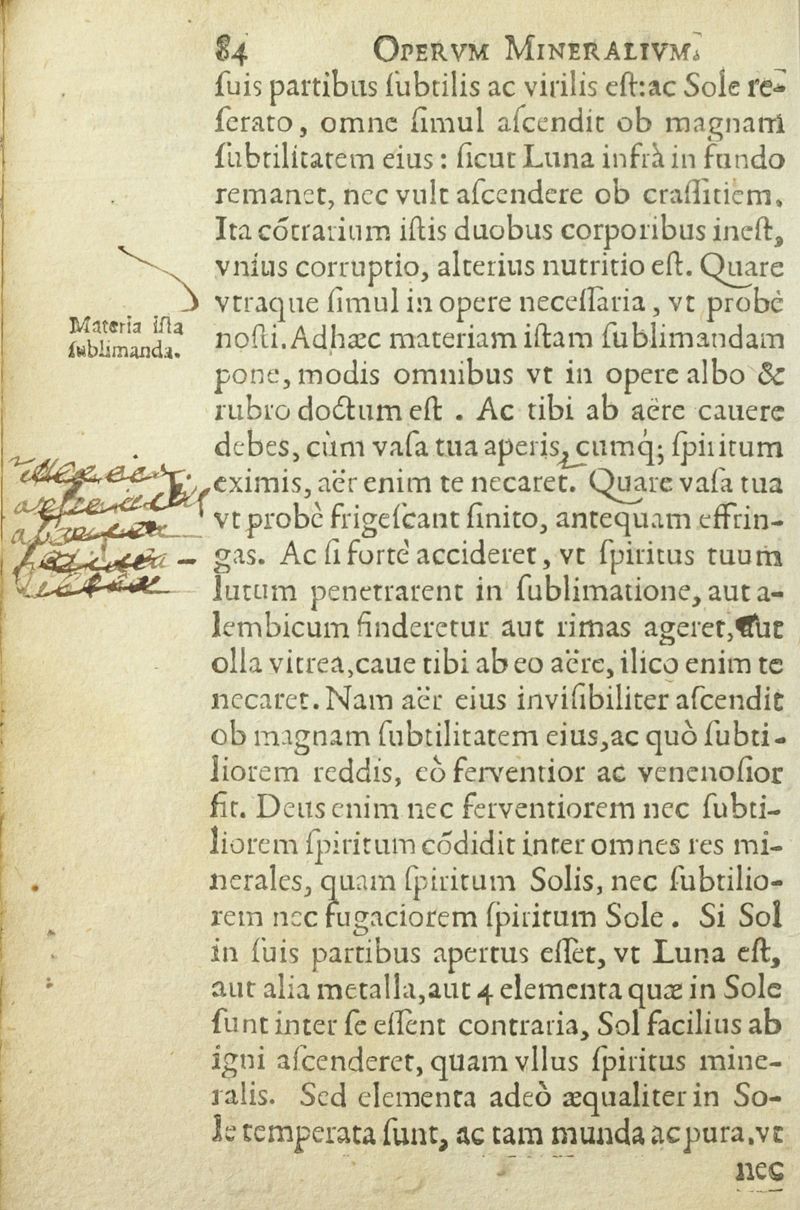 84 OPERVM MINERALIVM.
ſuis partibus ſubtilis ac virilis eſt:ac Sole re-
ſerato, omne ſimul aſcendit ob magnam
ſubtilitatem eius: ſicut Luna infrà in fundo
remanet, nec vult aſcendere ob craſſitiem.
Ita cõtrarium iſtis duobus corporibus ineſt,
vnius corruptio, alterius nutritio eſt. Quare
vtraque ſimul in opere neceſſaria, vt probè
Materia iſta
ſublimanda.
noſti. Adhæc materiam iſtam ſublimandam
pone, modis omnibus vt in opere albo &
rubro doctum eſt . Ac tibi ab aëre cauere
debes, cùm vaſa tua aperis, cumq; ſpiritum
eximis, aër enim te necaret. Quare vaſa tua
vt probè frigeſcant ſinito, antequam effrin-
gas. Ac ſi fortè accideret, vt ſpiritus tuum
lutum penetrarent in ſublimatione, aut a-
lembicum finderetur aut rimas ageret, aut
olla vitrea, caue tibi ab eo aëre, ilico enim te
necaret. Nam aër eius inviſibiliter aſcendit
ob magnam ſubtilitatem eius, ac quò ſubti-
liorem reddis, eò ferventior ac venenoſior
fit. Deus enim nec ferventiorem nec ſubti-
liorem ſpiritum cõdidit inter omnes res mi-
nerales, quam ſpiritum Solis, nec ſubtilio-
rem nec fugaciorem ſpiritum Sole . Si Sol
in ſuis partibus apertus eſſet, vt Luna eſt,
aut alia metalla, aut 4 elementa quæ in Sole
ſunt inter ſe eſſent contraria, Sol facilius ab
igni aſcenderet, quam vllus ſpiritus mine-
ralis. Sed elementa adeò æqualiter in So-
le temperata ſunt, ac tam munda ac pura, vt
nec